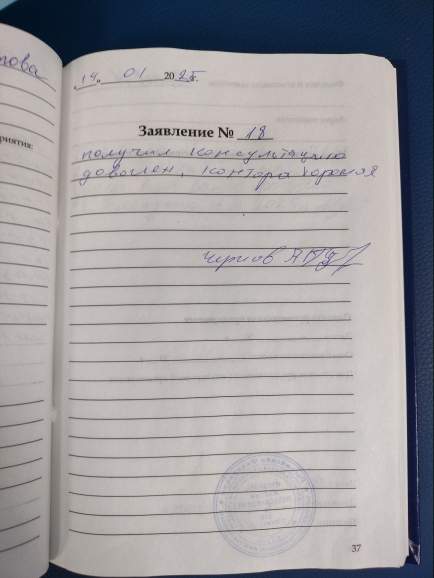 това
приятия:
„14" 01 2025г.
Заявление № 18
получил консультацию
доволен, контора хорошая
Чернов
37